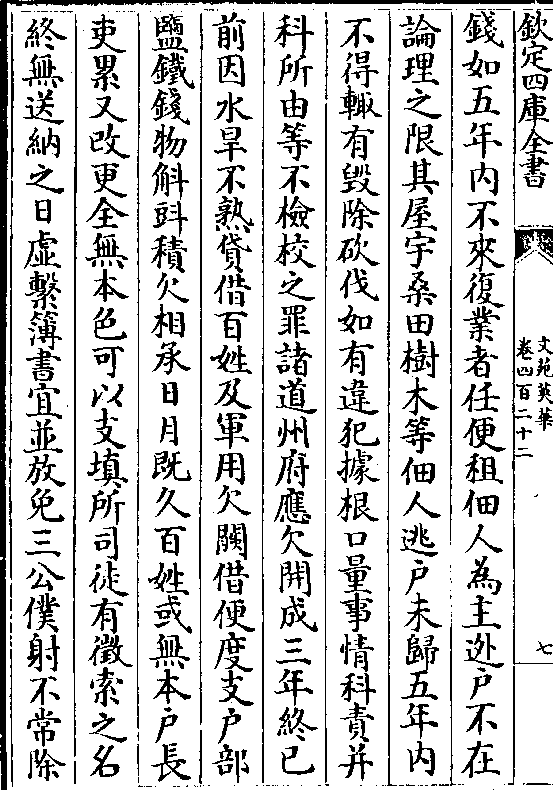 欽定四庫全書
文苑英華
卷四百二十二
七
錢如五年內不來復業者任便租佃人為主逃户不在
論理之限其屋宇桑田樹木等佃人逃户未歸五年內
不得輙有毀除砍伐如有違犯據根口量事情科責并
科所由等不檢校之罪諸道州府應欠開成三年終已
前因水旱不熟貸借百姓及軍用欠闕借便度支户部
鹽鐵錢物斛㪷積欠相承日月既久百姓或無本户長
吏累又改更全無本色可以支填所司徒有徵索之名
終無送納之日虛繫簿書宜並放免三公僕射不常除